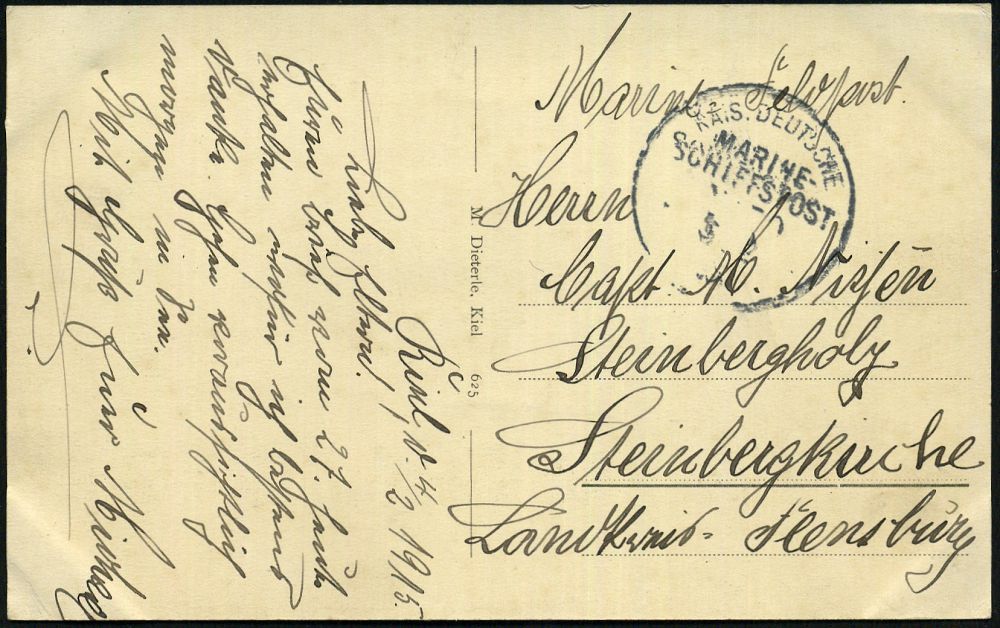 Marine Feldpost.
KAIS. DEUTSCHE
MARINE-
SCHIFFSPOST
Herrn
Capt. M. Nissen
Steinbergholz
Steinbergkirche
Landkreis-Flensburg
M. Dieterle, Kiel 625
Kiel d. 4/2 1915.
Liebe Eltern!
Euren Brief vom 27. heute
erhalten wofür ich bestens
danke. Gehen voraussichtlich
morgen in See.
Mit Gruß Euer